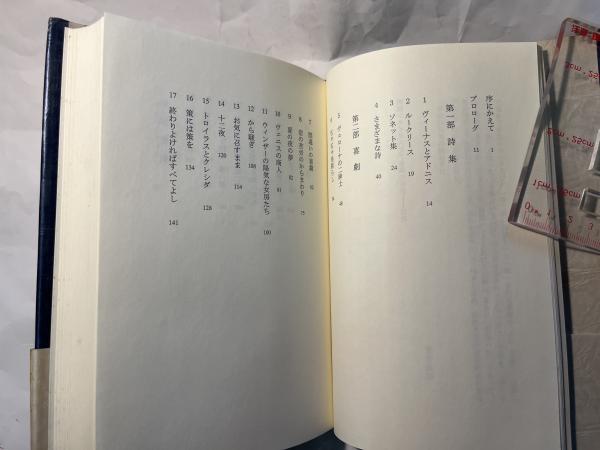 序にかえて 1
プロローグ 11
第一部 詩集
1 ヴィーナスとアドニス 14
2 ルークリース 19
3 ソネット集 24
4 さまざまな詩 40
第二部 喜劇
5 ヴェローナの二紳士 48
6
7 間違いの喜劇
8 恋の骨折りからまわり 75
9 夏の夜の夢 82
10 ヴェニスの商人 91
11 ウィンザーの陽気な女房たち 100
12 から騒ぎ 108
13 お気に召すまま 114
14 十二夜 120
15 トロイラスとクレシダ 128
16 策には策を 134
17 終わりよければすべてよし 141